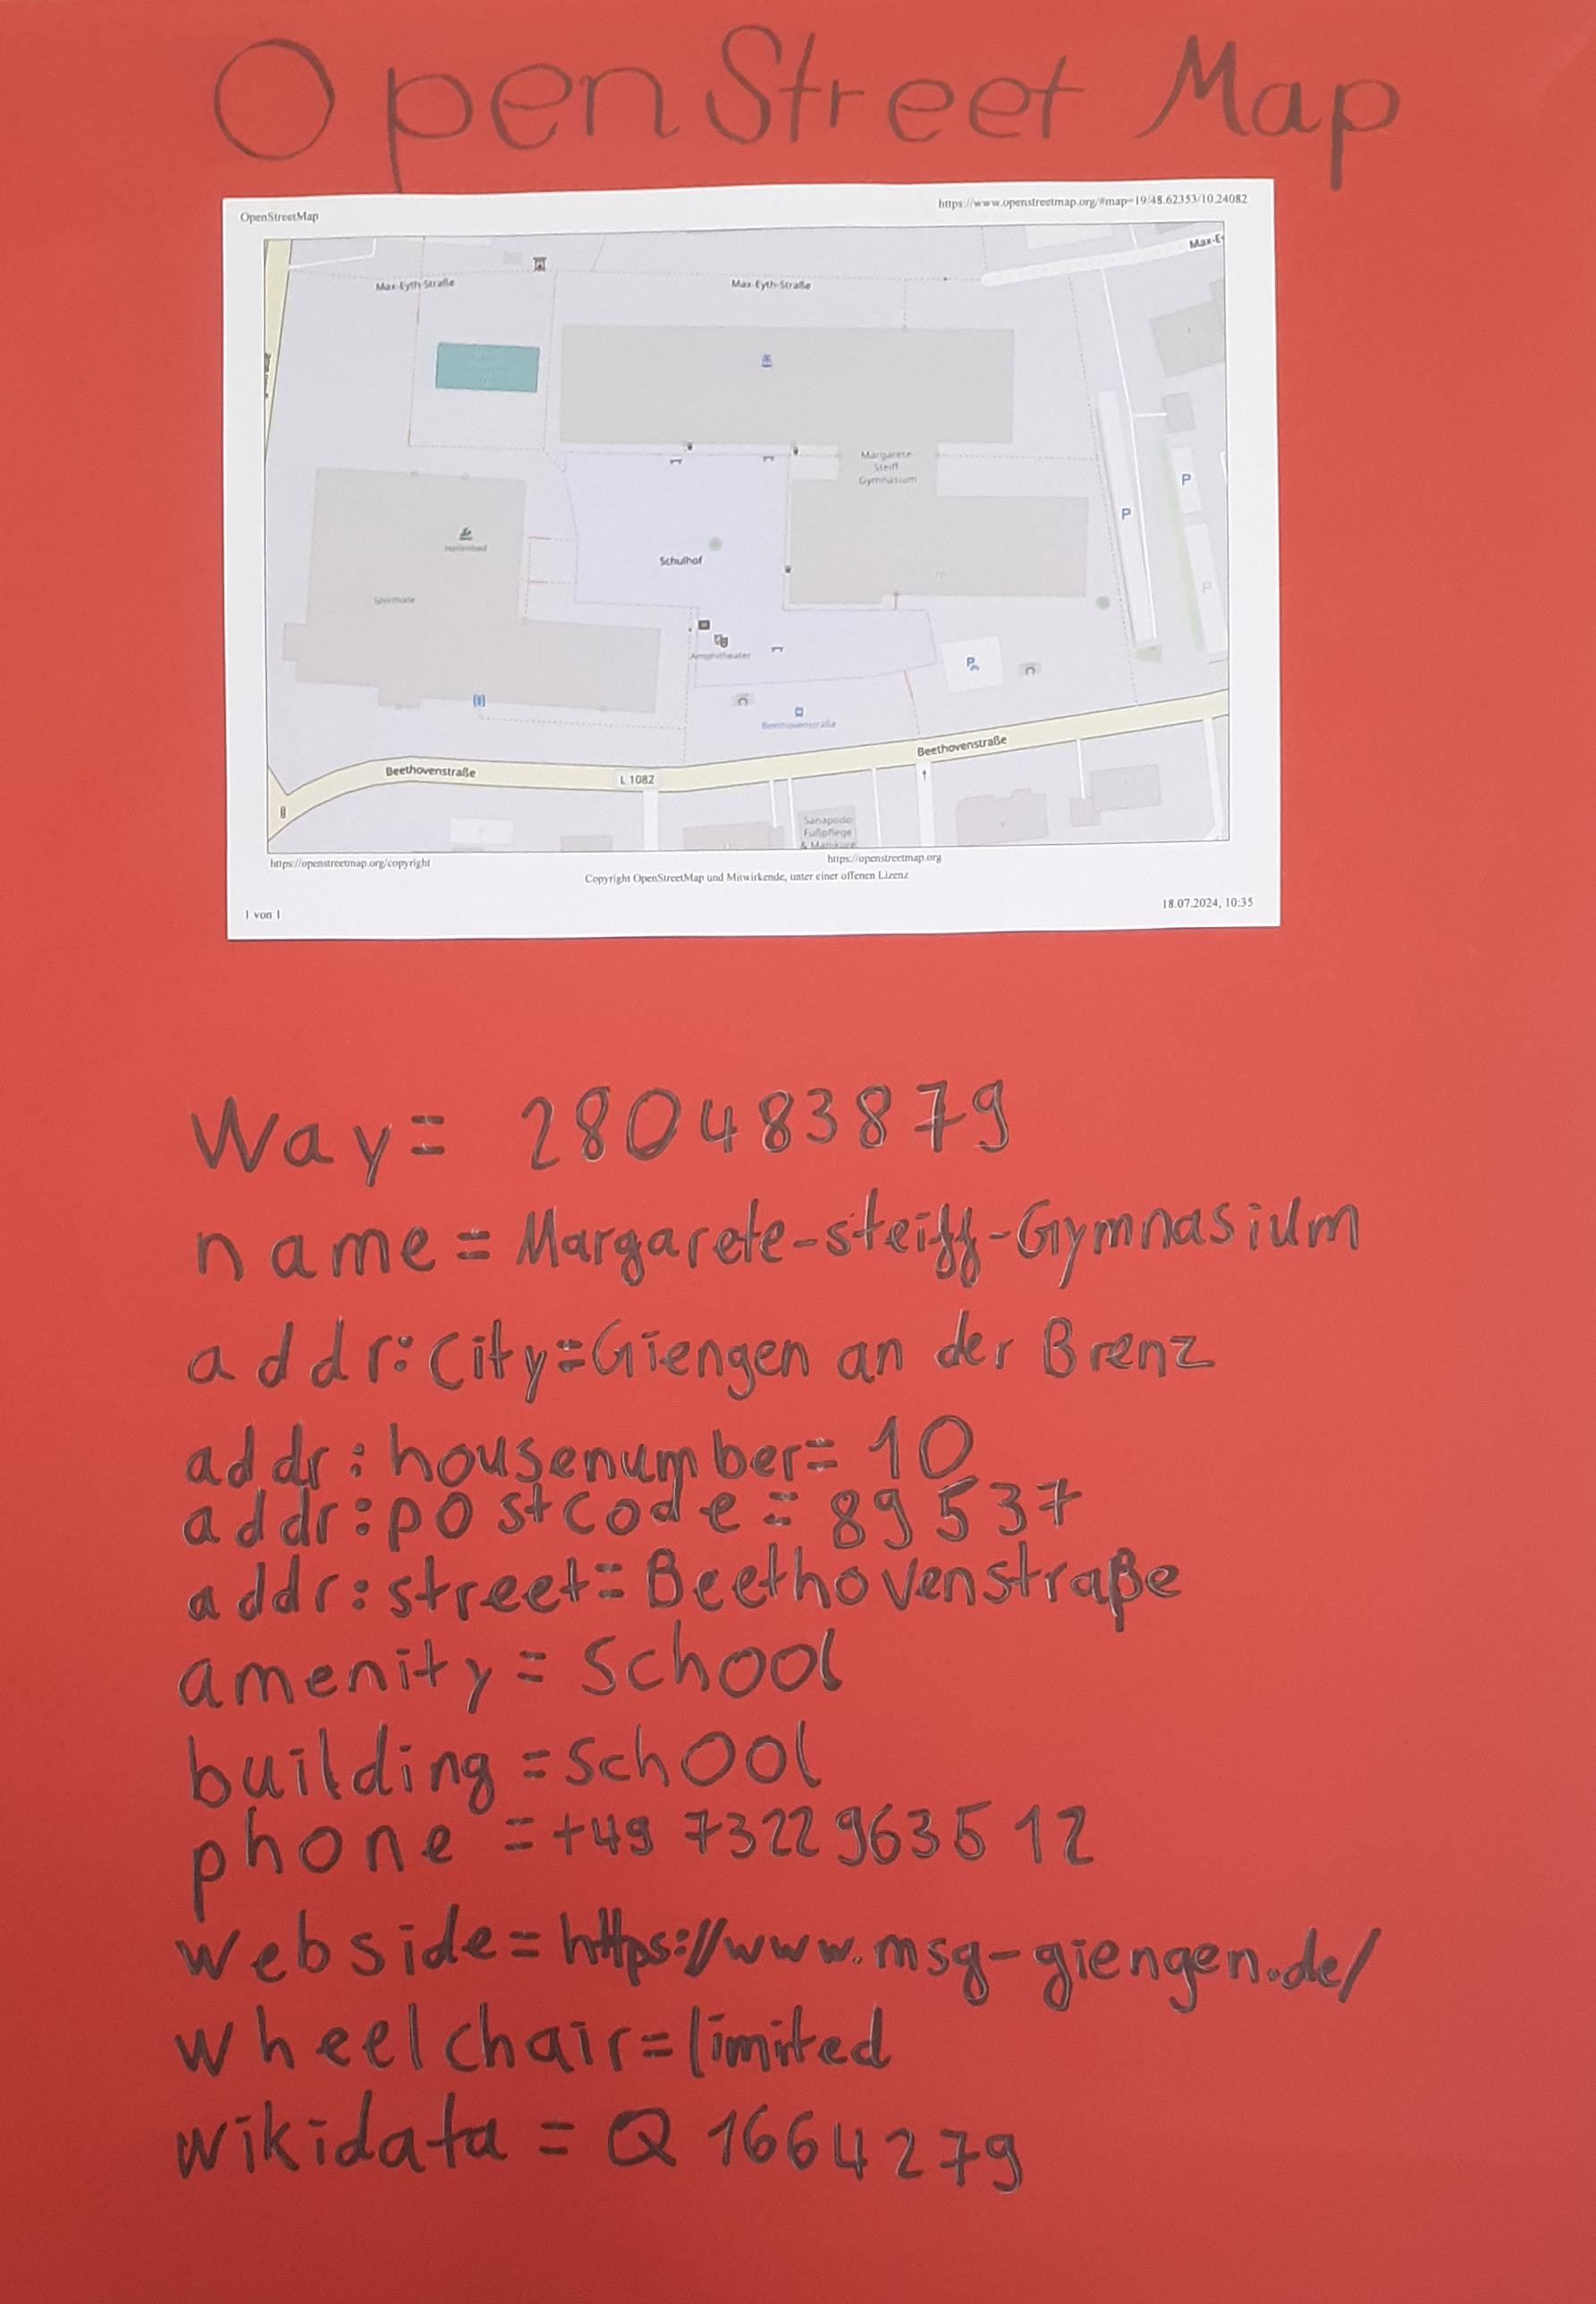 OpenStreet Map
OpenStreetMap
https://www.openstreetmap.org/#map=19/48.62353/10.24082
Max-Ey
Max-Eyth-Straße
Max-Eyth-Straße
Margarete
Steiff
Gymnasium
P
P
Hallenbad
Schulhof
P
Sporthalle
10
Amphitheater
P
Beethovenstraße
Beethovenstraße
Beethovenstraße
L 1082
Sanapodo
Fußpflege
& Maniküre
https://openstreetmap.org/copyright
https://openstreetmap.org
Copyright OpenStreetMap und Mitwirkende, unter einer offenen Lizenz
1 von 1
18.07.2024, 10:35
Way= 280483879
name = Margarete-steiff-Gymnasium
addr:city=Giengen an der Brenz
addr:housenumber= 10
addr:postcode = 89537
addr:street= Beethovenstraße
amenity = school
building = school
phone = +49 7322 9635 12
webside = https://www.msg-giengen.de/
wheelchair=limited
wikidata = Q 1664279